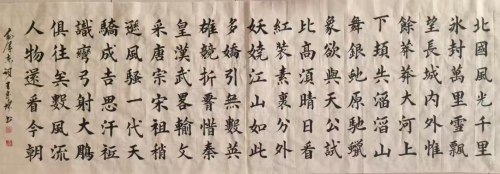 北國風光千里
冰封萬里雪飄
望長城内外惟
餘莽莽大河上
下頓失滔滔山
舞銀蛇原馳蠟
象欲與天公試
比高須晴日看
紅裝素裹分外
妖嬈江山如此
多嬌引無數英
雄競折腰惜秦
皇漢武畧輸文
采唐宗宋祖稍
遜風騷一代天
驕成吉思汗祇
識彎弓射大鵰
俱往矣數風流
人物還看今朝
毛澤東詞